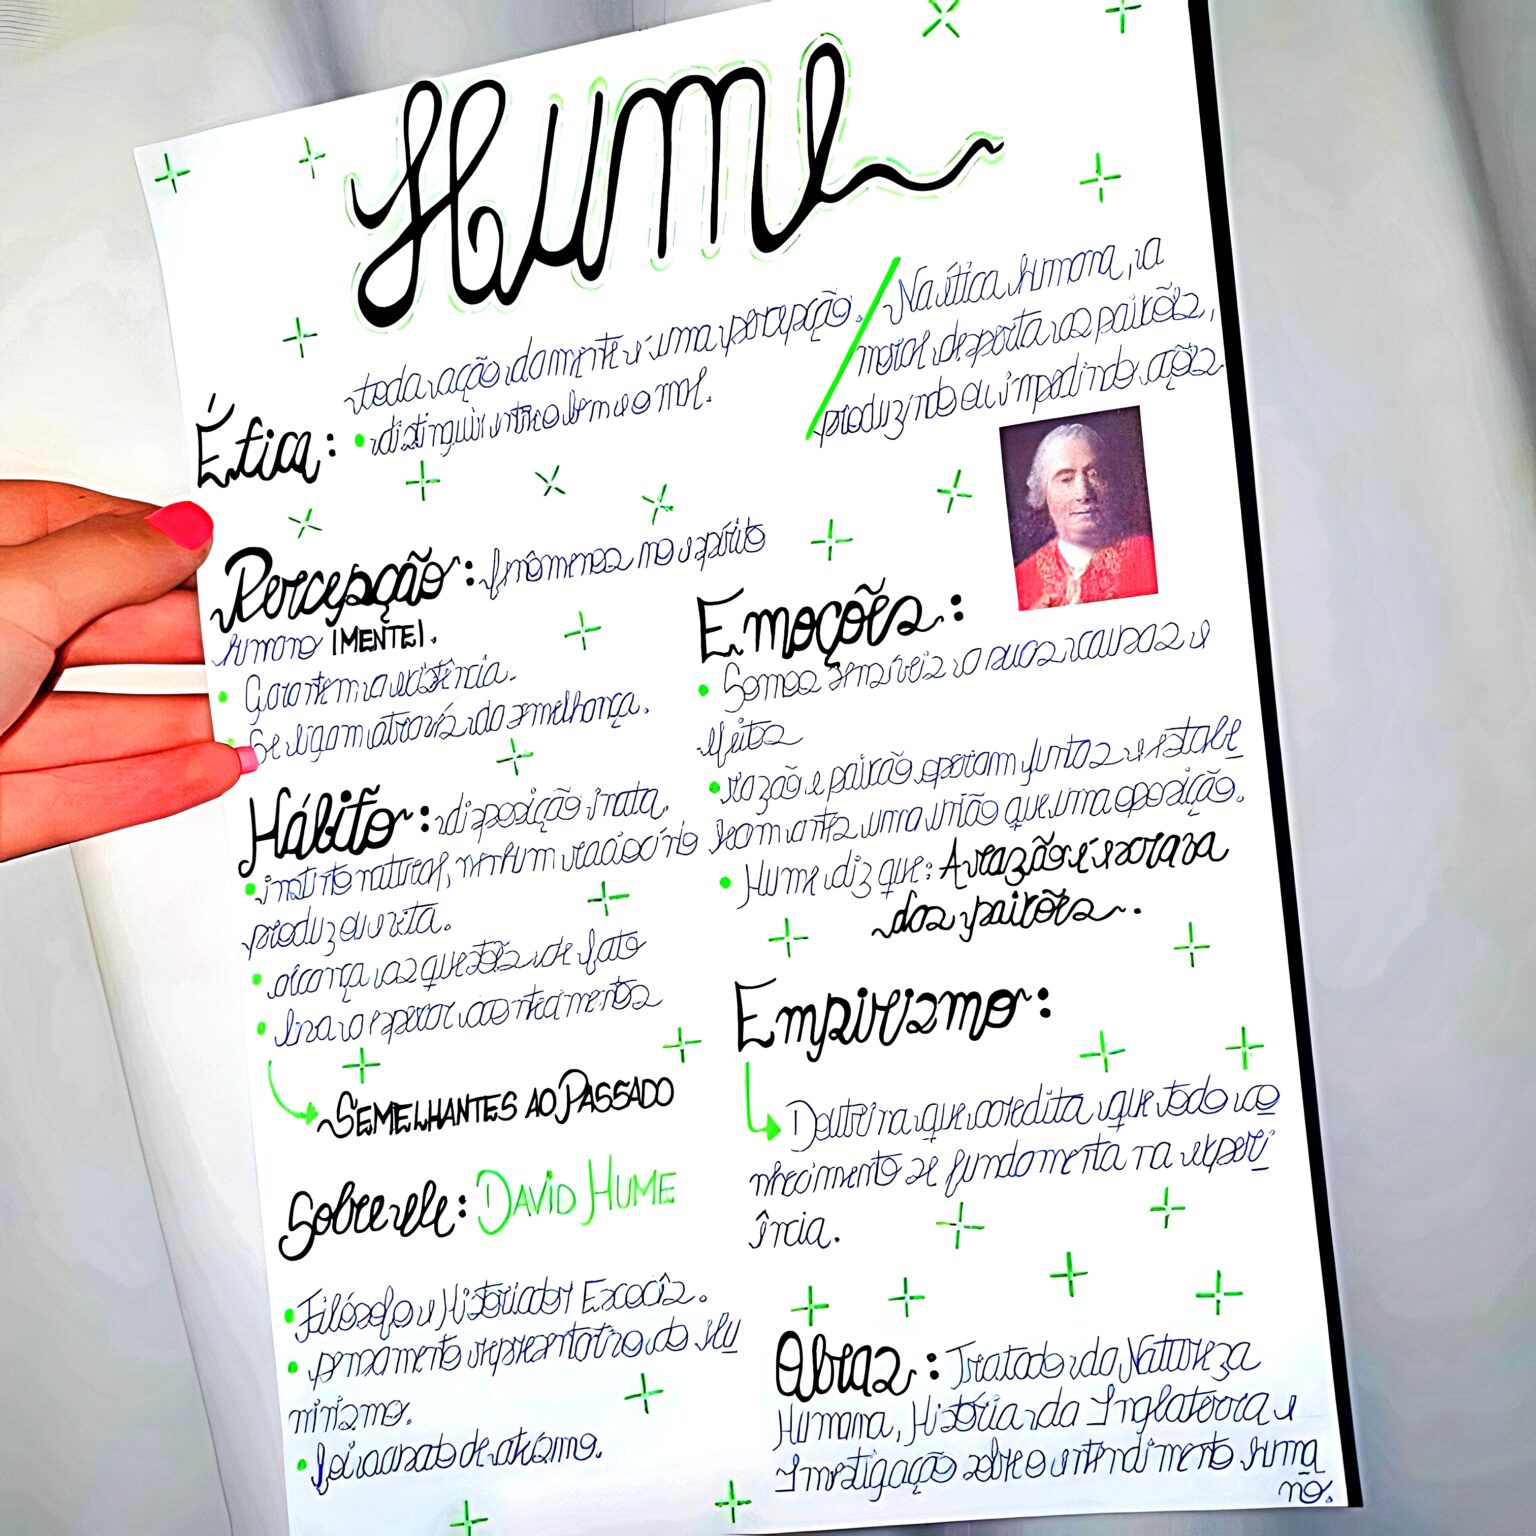 Hume
Ética:
toda ação da mente é uma percepção.
• distinguir entre o bem e o mal.
Na ética humana, a
moral desperta as paixões,
produzindo ou impedindo ações
Percepção: fenômenos no espírito
humano |MENTE|.
• Garantem a existência.
• Se ligam através da semelhança.
Hábito: disposição inata.
• instinto natural, nenhum raciocínio
produz ou evita.
• alcança as questões de fato
• leva a esperar acontecimentos
SEMELHANTES AO PASSADO
Sobre ele: DAVID HUME
• Filósofo e Historiador Escocês.
• pensamento representativo do Ilu
minismo.
• foi acusado de ateísmo.
Emoções:
• Somos sensíveis a suas causas e
efeitos
• razão e paixão operam juntas e estabe
lecem antes uma união que uma oposição.
• Hume diz que: A razão é escrava
das paixões.
Empirismo:
Doutrina que acredita que todo co
nhecimento se fundamenta na experi
ência.
Obras: Tratado da Natureza
Humana, História da Inglaterra e
Investigação sobre o entendimento huma
no.